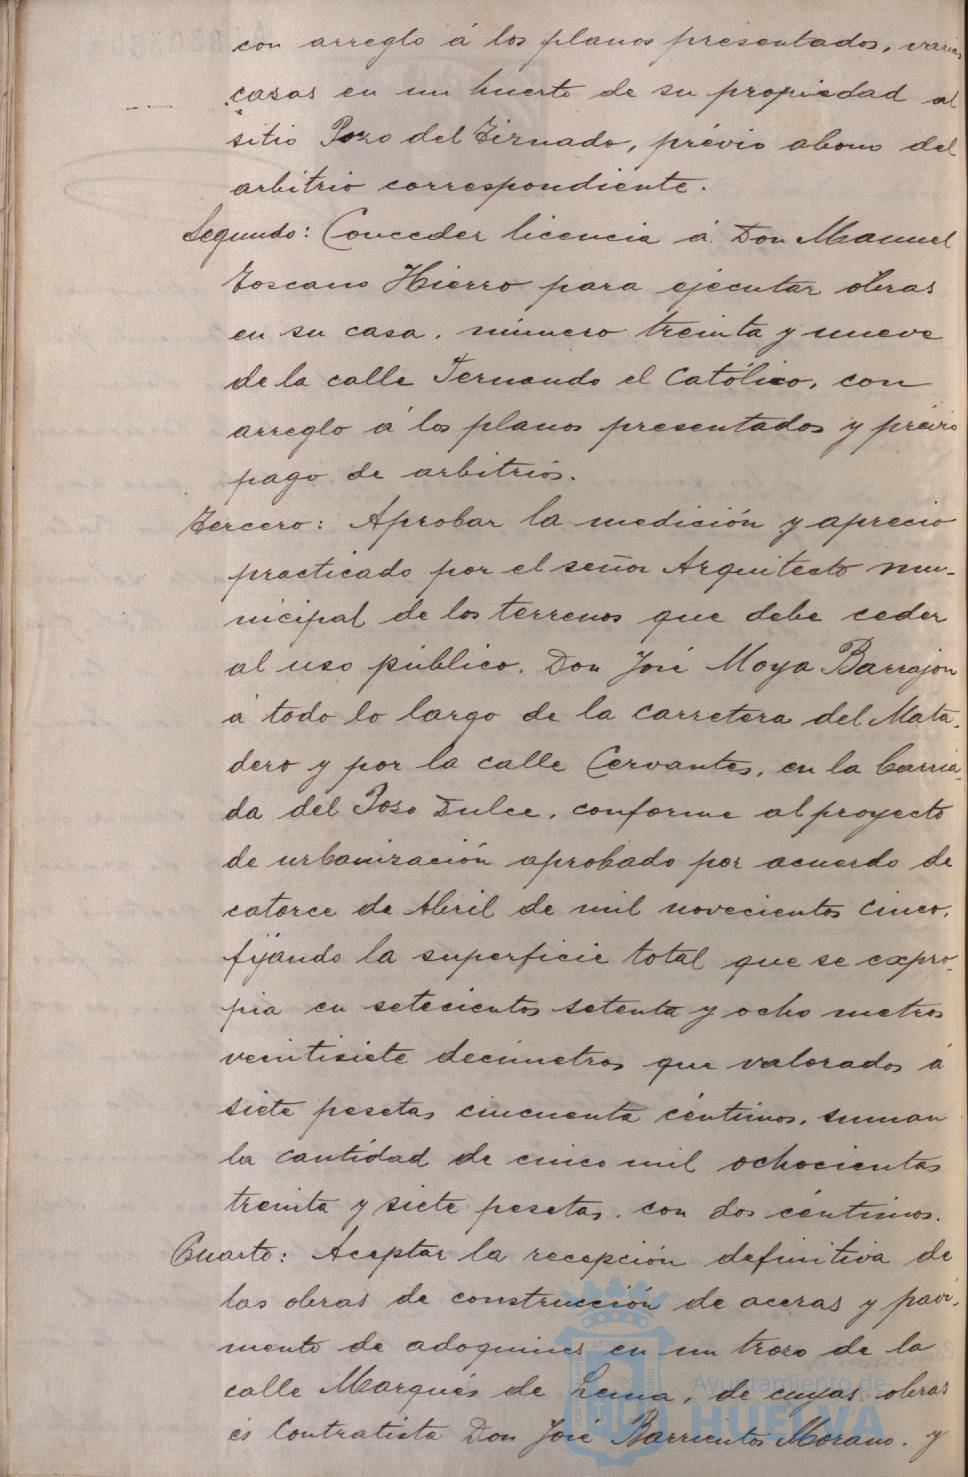 con arreglo á los planos presentados, varias
casas en un huerto de su propiedad al
sitio Pozo del Tirnado, prévio abono del
arbitrio correspondiente.
Segundo: Conceder licencia á Don Manuel
Toscano Hierro para ejecutar obras
en su casa, número treinta y nueve
de la calle Fernando el Católico, con
arreglo á los planos presentados y prévio
pago de arbitrios.
Tercero: Aprobar la medición y aprecio
practicado por el señor Arquitecto mu-
nicipal de los terrenos que debe ceder
al uso público, Don José Moya Barrajon
á todo lo largo de la carretera del Mata-
dero y por la calle Cervantes, en la barria-
da del Poso Dulce, conforme al proyecto
de urbanización aprobado por acuerdo de
catorce de Abril de mil novecientos cinco,
fijando la superficie total que se expro-
pia en setecientos setenta y ocho metros
veintisiete decimetros que valorados á
siete pesetas cincuenta céntimos, suman
la cantidad de cinco mil ochocientas
treinta y siete pesetas, con dos céntimos.
Cuarto: Aceptar la recepción definitiva de
las obras de construcción de aceras y pavi-
mento de adoquines en un trozo de la
calle Marqués de Lema, de cuyas obras
és Contratista Don José Barrientos Morano, y
Ayuntamiento de
HUELVA